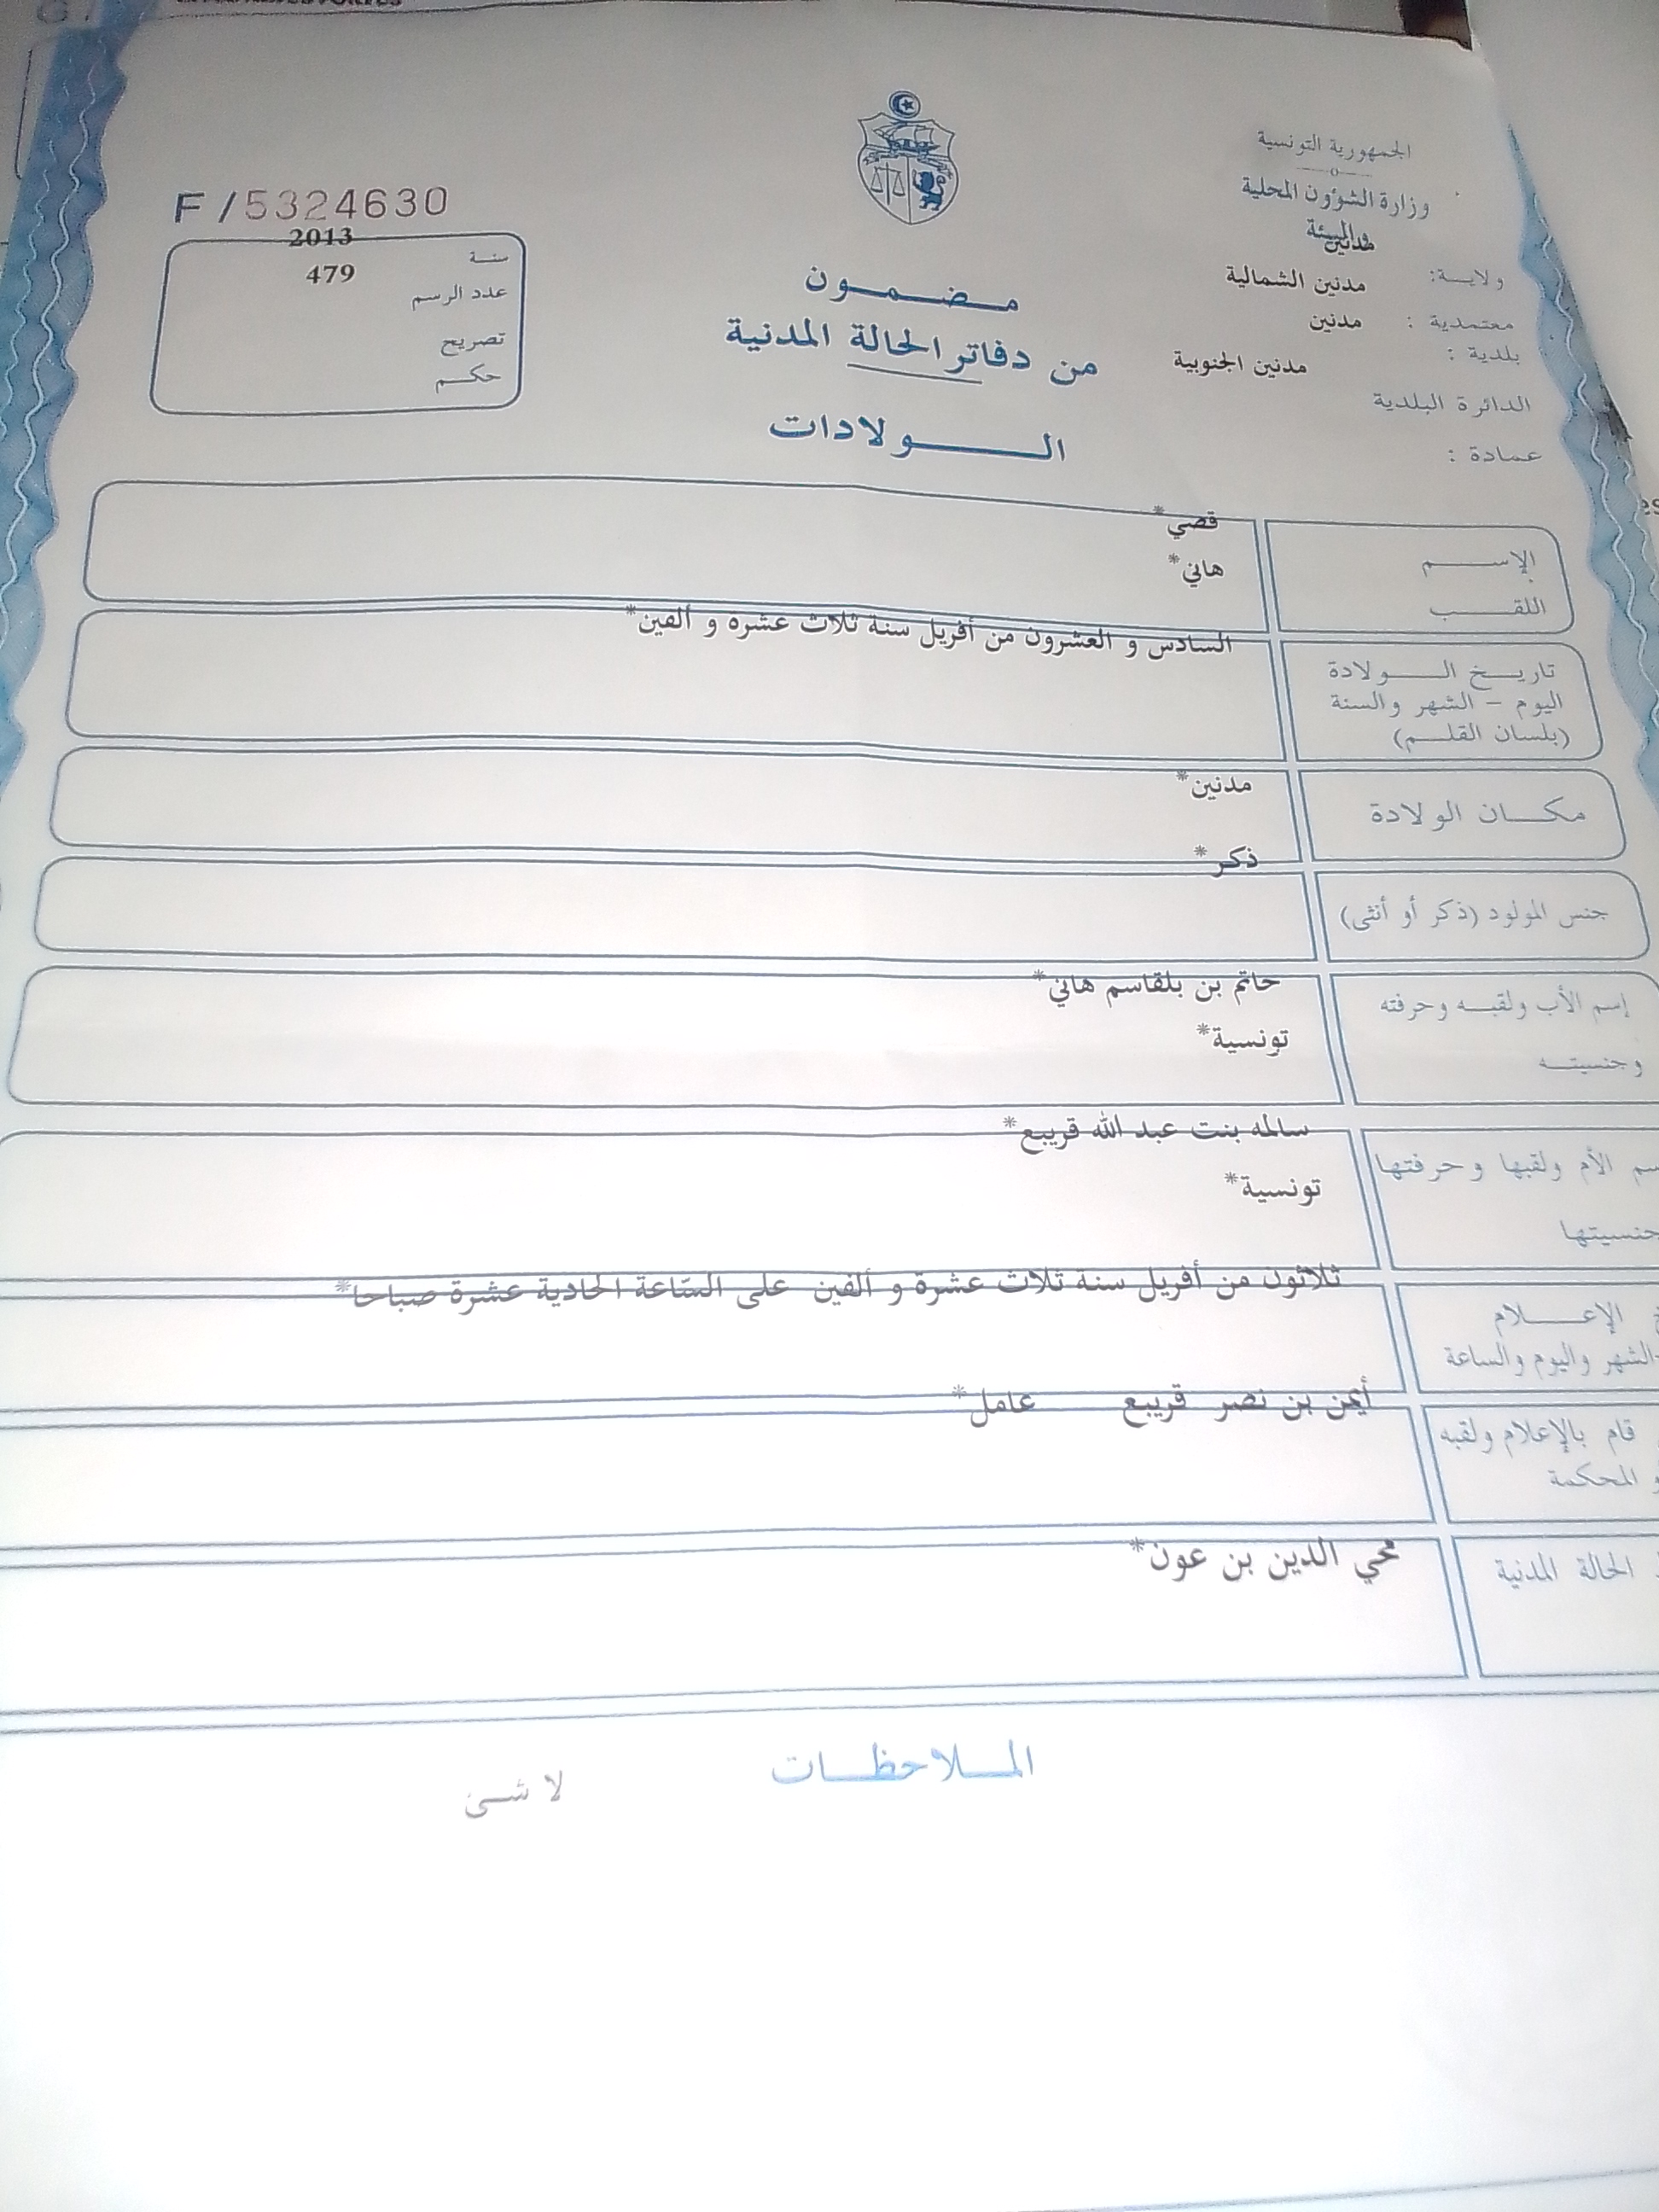 الجمهورية التونسية
وزارة الشؤون المحلية
والبيئة
ولاية: مدنين
معتمدية : مدنين الشمالية
بلدية : مدنين
الدائرة البلدية مدنين الجنوبية
عمادة :
F/5324630
سنة 2013
عدد الرسم 479
تصريح
حكم
مضمون
من دفاتر الحالة المدنية
الولادات
الإسم قصي*
اللقب هاني*
تاريخ الولادة السادس و العشرون من أفريل سنة ثلاث عشرة و ألفين*
اليوم – الشهر والسنة
(بلسان القلم)
مكان الولادة مدنين*
جنس المولود (ذكر أو أنثى) ذكر*
إسم الأب ولقبه وحرفته حاتم بن بلقاسم هاني*
وجنسيته تونسية*
سم الأم ولقبها وحرفتها سالمه بنت عبد الله قريبع*
جنسيتها تونسية*
خ الإعلام ثلاثون من أفريل سنة ثلاث عشرة و ألفين على السّاعة الحادية عشرة صباحا*
-الشهر واليوم والساعة
قام بالإعلام ولقبه أيمن بن نصر قريبع عامل*
و المحكمة
الحالة المدنية محي الدين بن عون*
الملاحظات
لا شئ